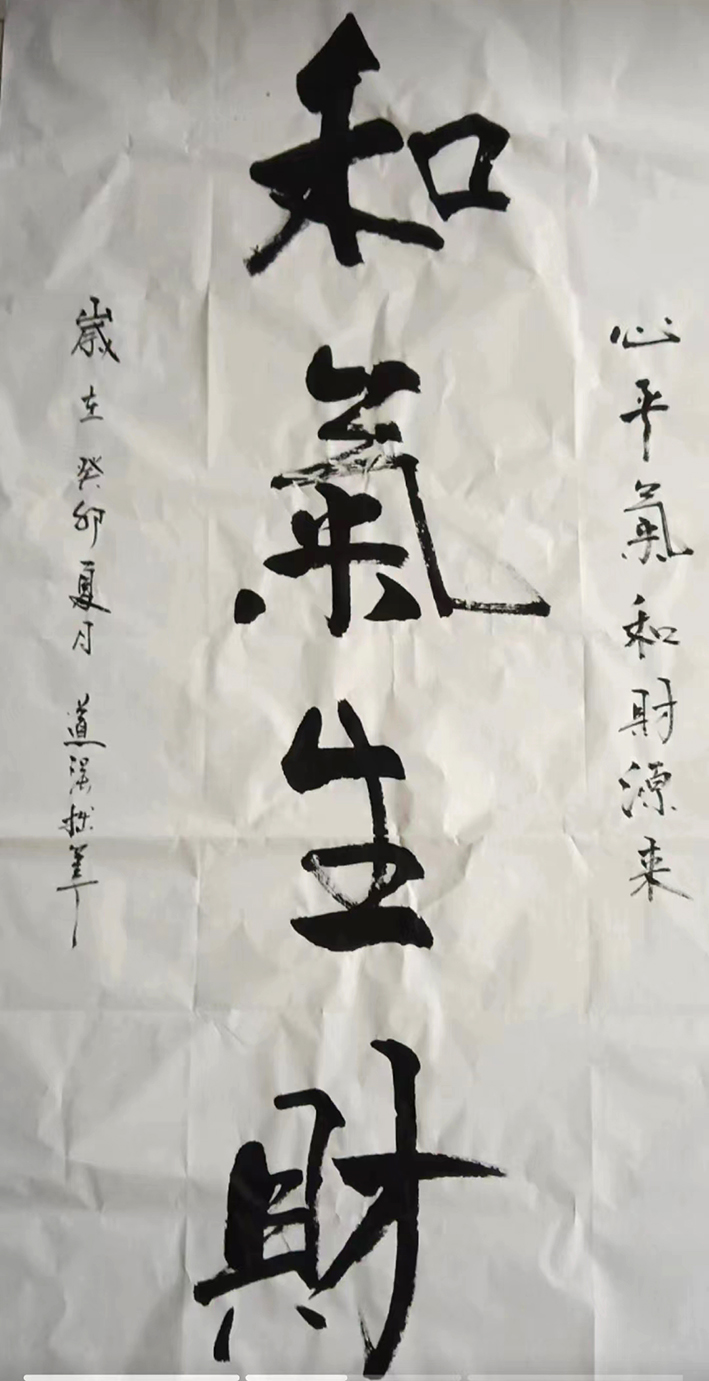 心平氣和財源來
和氣生財
歲在癸卯夏月 道深拙筆